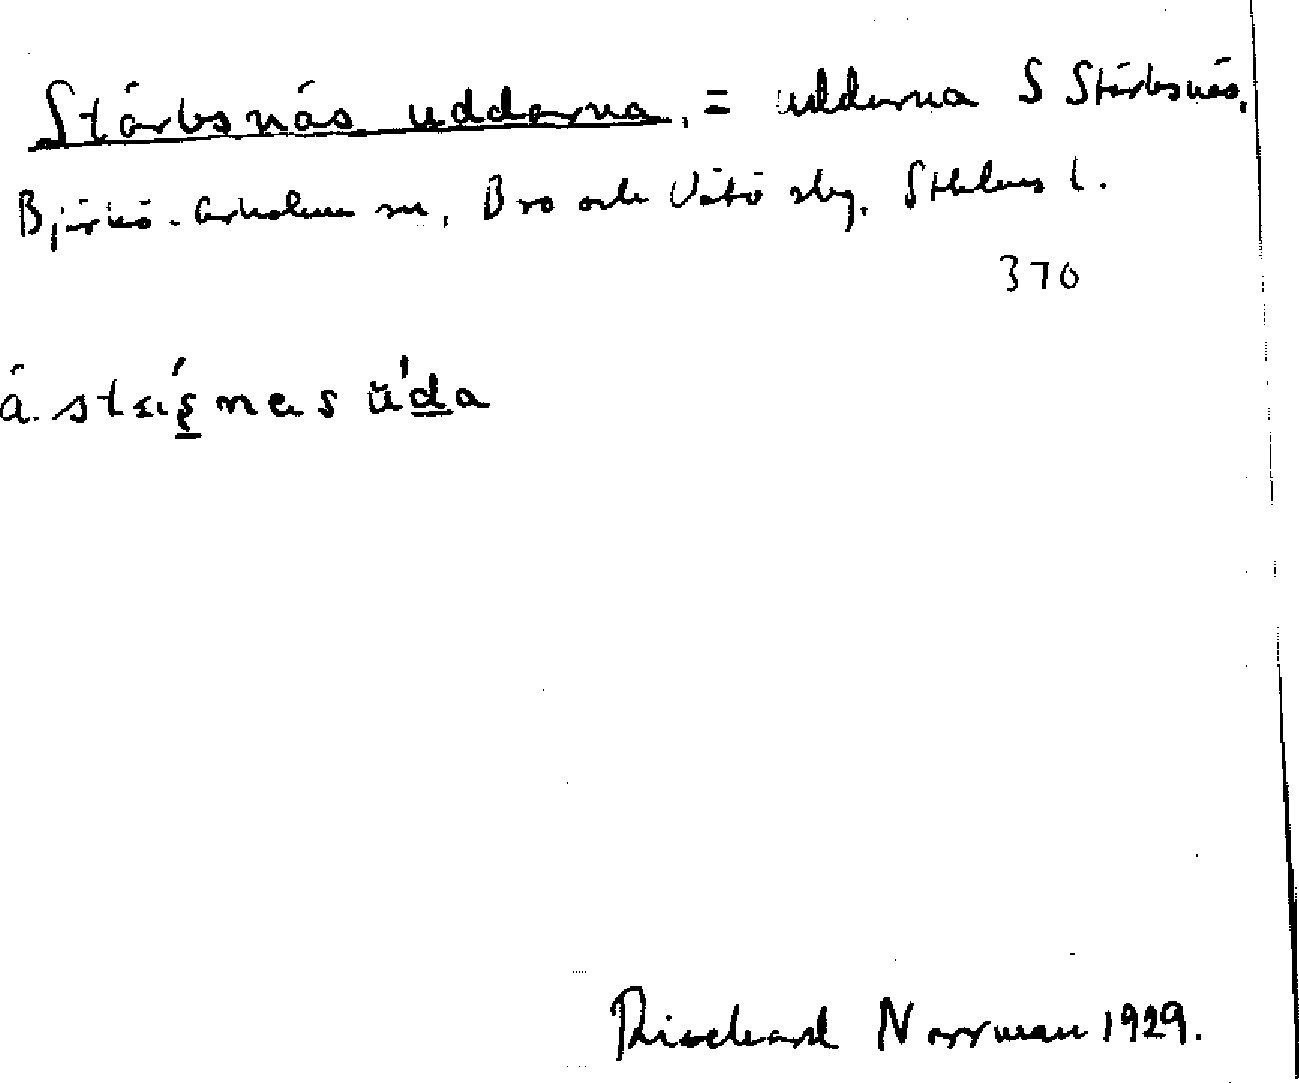 Stärbsnäs uddarna, = uddarna S Stärbsnäs,
Björkö-Arholma sn, Bro och Vätö skg, Sthlms l.
370
Richard Norrman 1929.